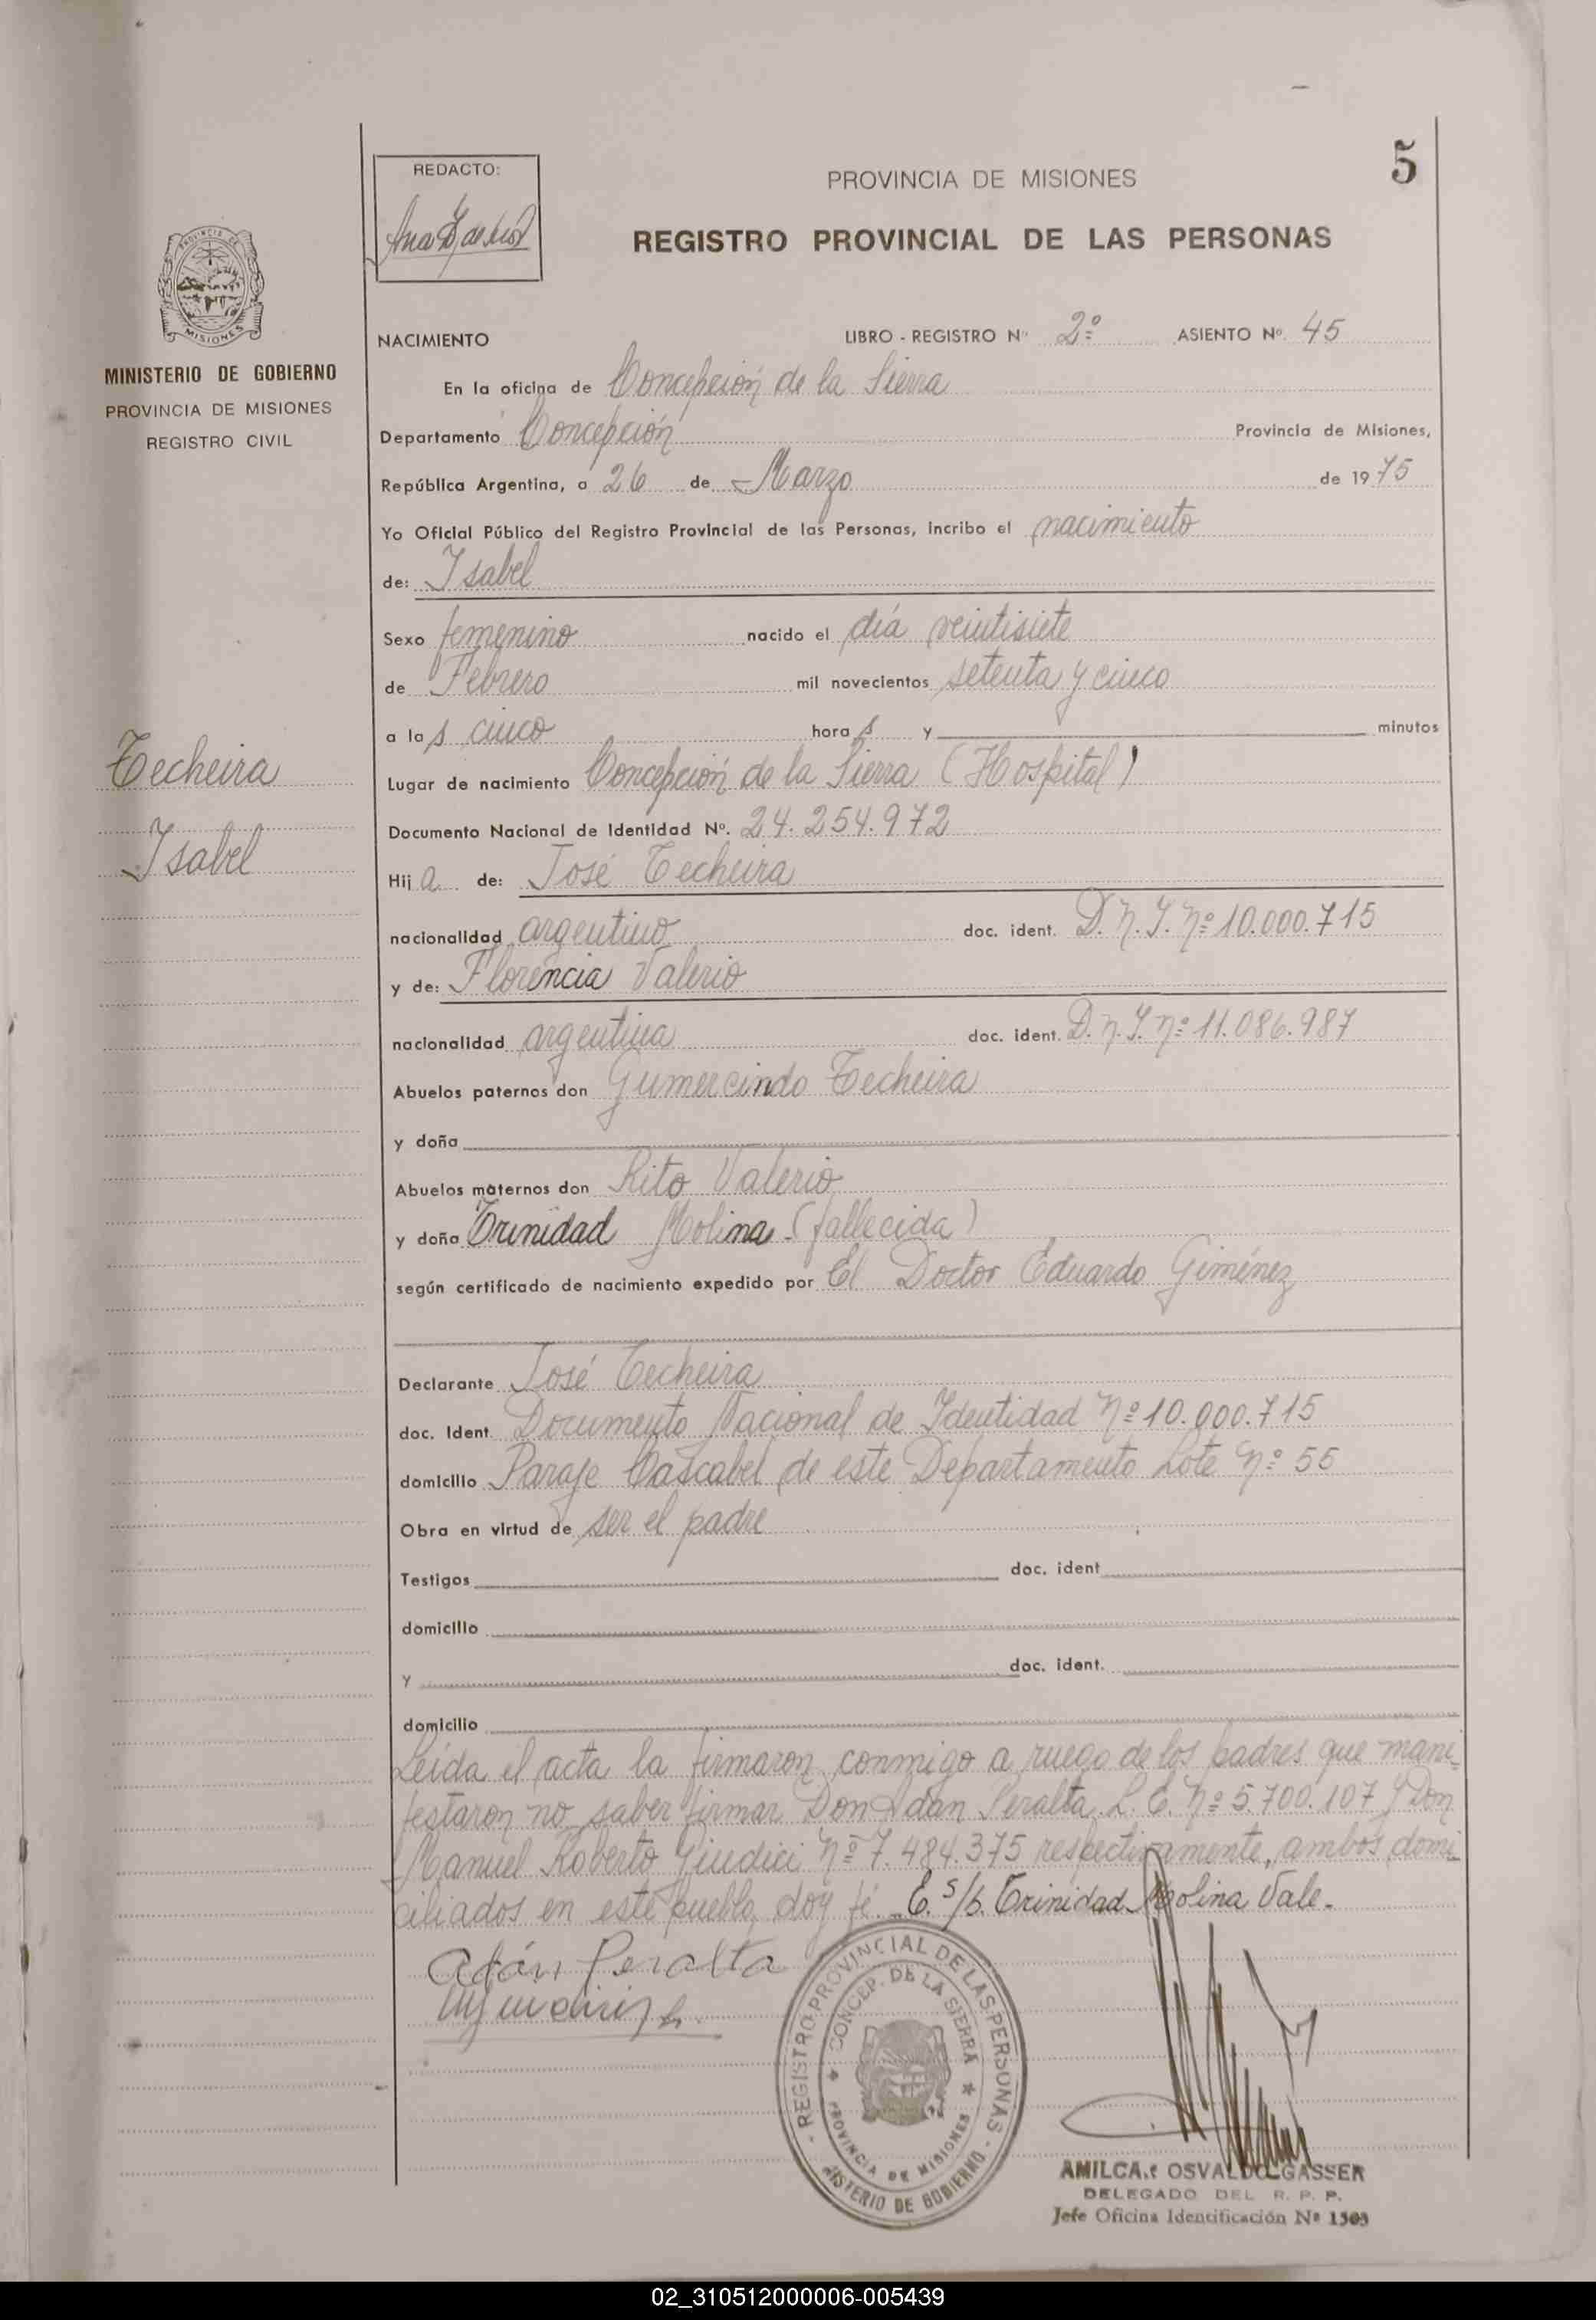 5
REDACTO:
PROVINCIA DE MISIONES
REGISTRO PROVINCIAL DE LAS PERSONAS
PROVINCIA DE
MISIONES
MINISTERIO DE GOBIERNO
PROVINCIA DE MISIONES
REGISTRO CIVIL
NACIMIENTO LIBRO - REGISTRO Nº 2º ASIENTO Nº 45
En la oficina de Concepción de la Sierra
Departamento Concepción Provincia de Misiones,
República Argentina, a 26 de Marzo de 1975
Yo Oficial Público del Registro Provincial de las Personas, incribo el nacimiento
de: Isabel
Sexo femenino nacido el día veintisiete
de Febrero mil novecientos setenta y cinco
a las cinco horas y minutos
Techeira
Isabel
Lugar de nacimiento Concepción de la Sierra (Hospital)
Documento Nacional de Identidad Nº. 24.254.972
Hija de: José Techeira
nacionalidad argentino doc. ident. D.N.I. Nº 10.000.715
y de: Florencia Valerio
nacionalidad argentina doc. ident. D.N.I. Nº 11.086.987
Abuelos paternos don Gumercindo Techeira
y doña
Abuelos maternos don Rito Valerio
y doña Trinidad Molina (fallecida)
según certificado de nacimiento expedido por El Doctor Eduardo Giménez
Declarante José Techeira
doc. Ident. Documento Nacional de Identidad Nº 10.000.715
domicilio Paraje Cascabel de este Departamento Lote Nº 55
Obra en virtud de ser el padre
Testigos doc. ident
domicilio
y doc. ident.
domicilio
Leída el acta la firmaron conmigo a ruego de los padres que mani-
festaron no saber firmar Don Adán Peralta L.E. Nº 5.700.107 y Don
Manuel Roberto Giudici Nº 7.484.375 respectivamente, ambos domi-
ciliados en este pueblo, doy fé. E. s/b. Trinidad Molina Vale.
Adán Peralta
REGISTRO PROVINCIAL DE LAS PERSONAS - MINISTERIO DE GOBIERNO -
CONCEP. DE LA SIERRA
PROVINCIA DE MISIONES
AMILCAR OSVALDO GASSER
DELEGADO DEL R. P. P.
Jefe Oficina Identificación Nº 1503
02_310512000006-005439